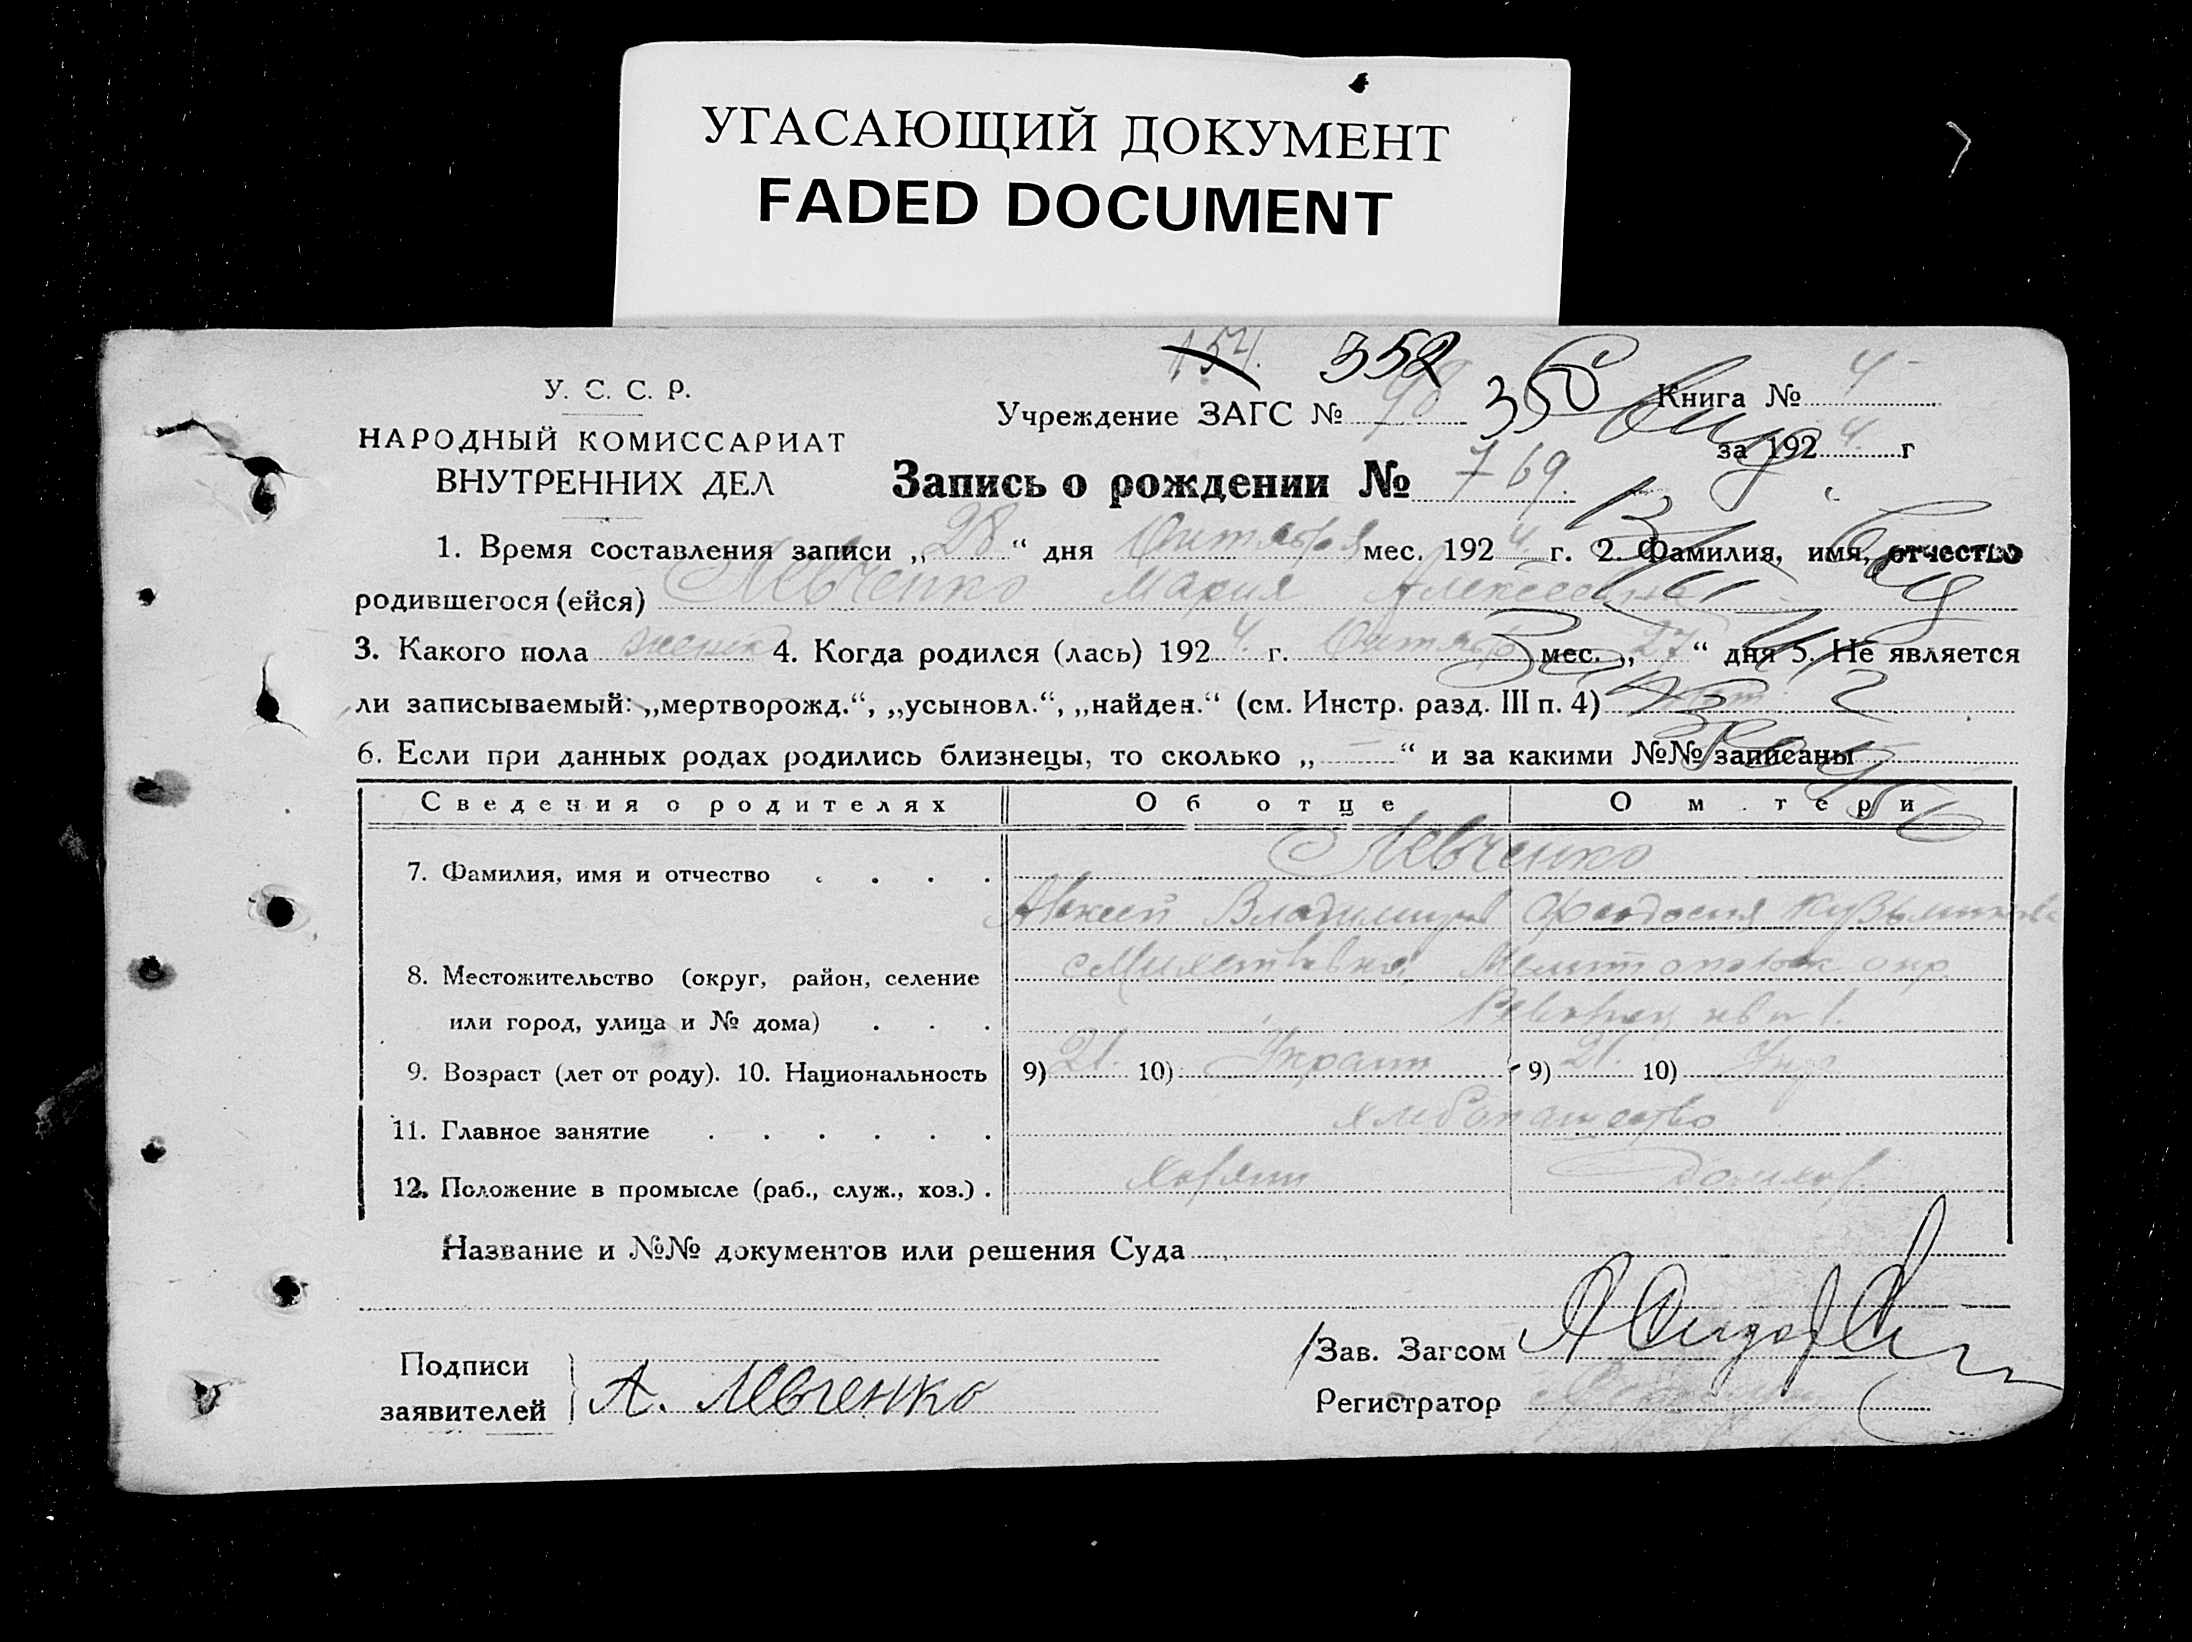 УГАСАЮЩИЙ ДОКУМЕНТ
FADED DOCUMENT
154. 352
У. С. С. Р.
НАРОДНЫЙ КОМИССАРИАТ
ВНУТРЕННИХ ДЕЛ
Учреждение ЗАГС № 98 356 Книга № 4
за 1924 г
Запись о рождении № 769.
1. Время составления записи „28“ дня Октября мес. 1924 г. 2. Фамилия, имя, отчество
родившегося (ейся) Левченко Мария Алексеевна
3. Какого пола женск 4. Когда родился (лась) 1924. г. Октяб мес. „27“ дня 5. Не является
ли записываемый: „мертворожд.“, „усыновл.“, „найден.“ (см. Инстр. разд. III п. 4)
6. Если при данных родах родились близнецы, то сколько „—“ и за какими №№ записаны
Сведения о родителях Об отце О м тери
7. Фамилия, имя и отчество . . . . Левченко
Алексей Владимиров Феодосия Кузьминовна
8. Местожительство (округ, район, селение Мелитопольск окр
или город, улица и № дома) . . .
9. Возраст (лет от роду). 10. Национальность 9) 21. 10) Украин 9) 21. 10) Укр
11. Главное занятие . . . . . . хлебопашество
12. Положение в промысле (раб., служ., хоз.) . хозяин домхоз.
Название и №№ документов или решения Суда
Подписи
заявителей А. Левченко
Зав. Загсом
Регистратор